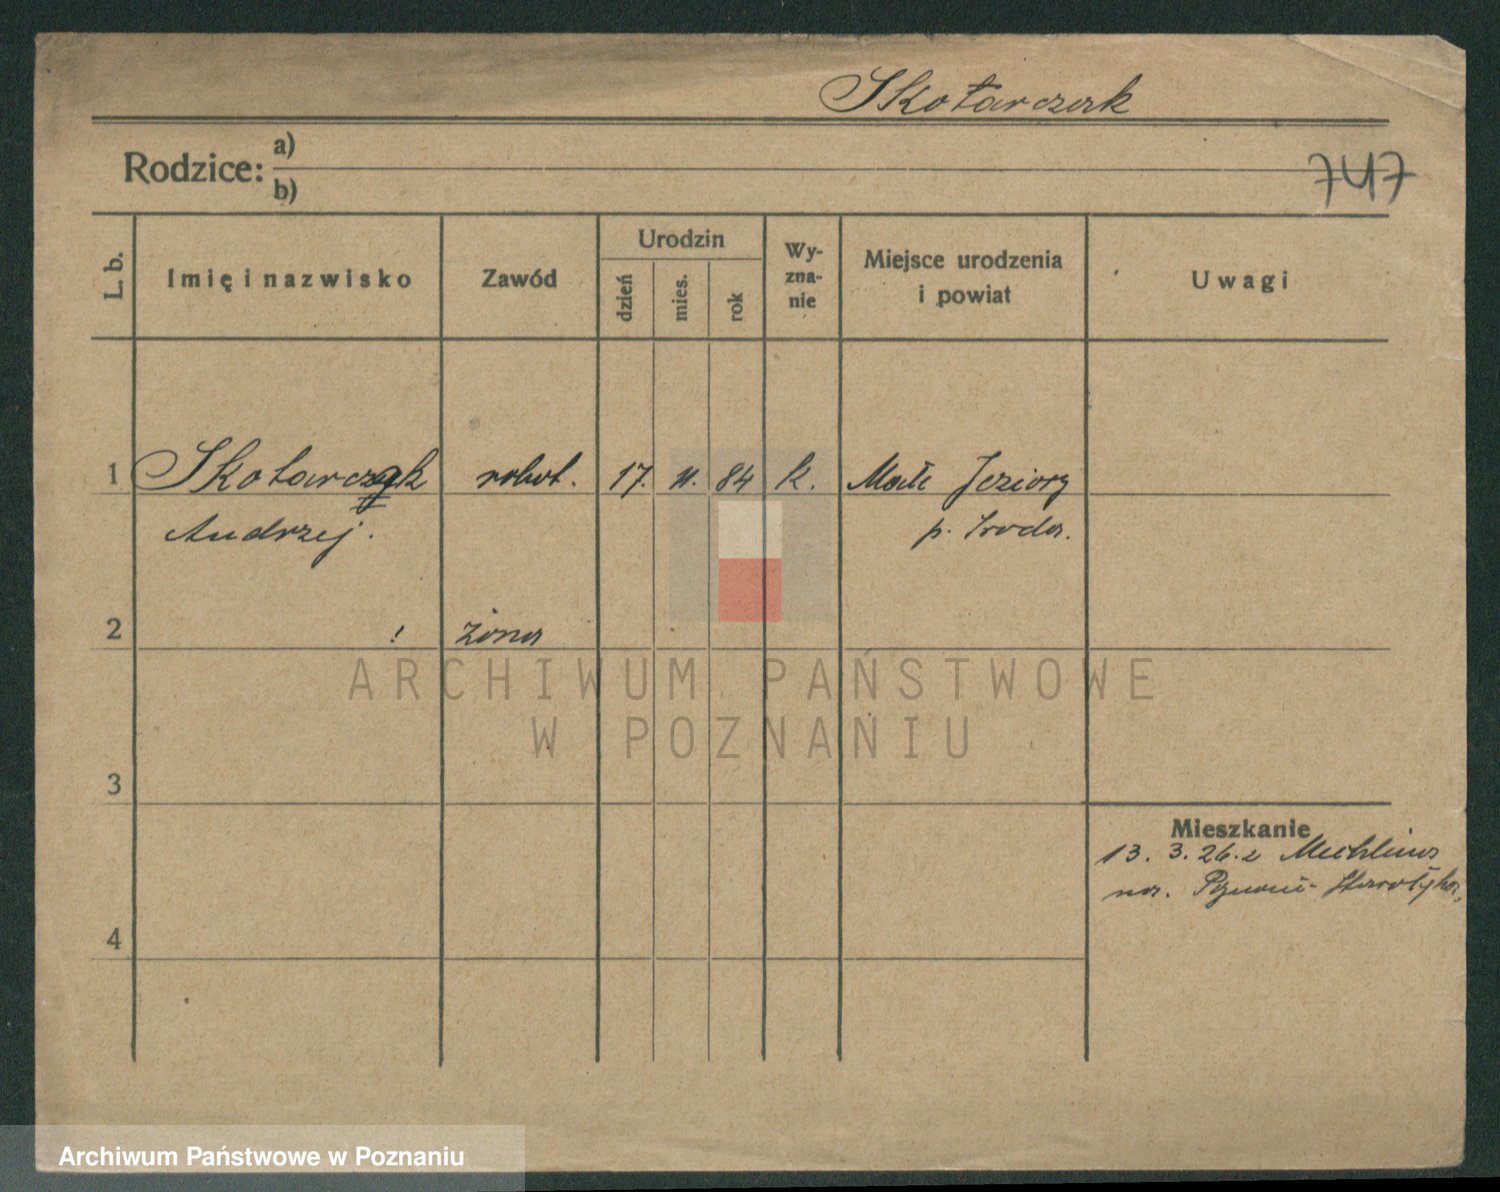 Skotarczak
Rodzice: a)
b)
747
L. b.
Imię i nazwisko
Zawód
Urodzin
dzień
mies.
rok
Wy-
zna-
nie
Miejsce urodzenia
i powiat
Uwagi
1 Skotarczak robot. 17. 11. 84 k. Małe Jeziory
Andrzej. p. Środa.
2 ! żona
ARCHIWUM PAŃSTWOWE
W POZNANIU
3
Mieszkanie
13. 3. 26. z Mechlina
na.
4
Archiwum Państwowe w Poznaniu